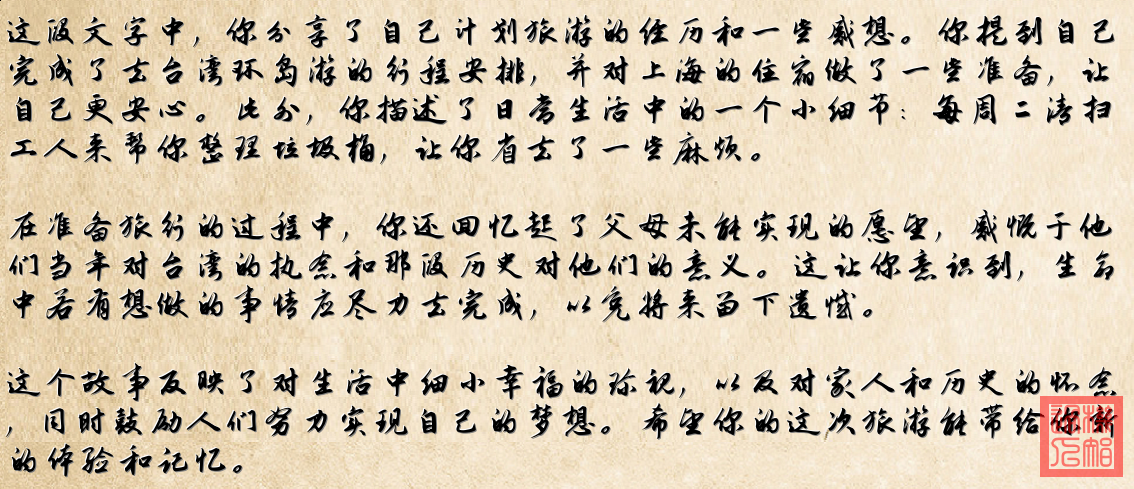 这段文字中，你分享了自己计划旅游的经历和一些感想。你提到自己
完成了去台湾环岛游的行程安排，并对上海的住宿做了一些准备，让
自己更安心。此外，你描述了日常生活中的一个小细节：每周二清扫
工人来帮你整理垃圾桶，让你省去了一些麻烦。
在准备旅行的过程中，你还回忆起了父母未能实现的愿望，感慨于他
们当年对台湾的执念和那段历史对他们的意义。这让你意识到，生命
中若有想做的事情应尽力去完成，以免将来留下遗憾。
这个故事反映了对生活中细小幸福的珍视，以及对家人和历史的怀念
，同时鼓励人们努力实现自己的梦想。希望你的这次旅游能带给你新
的体验和记忆。